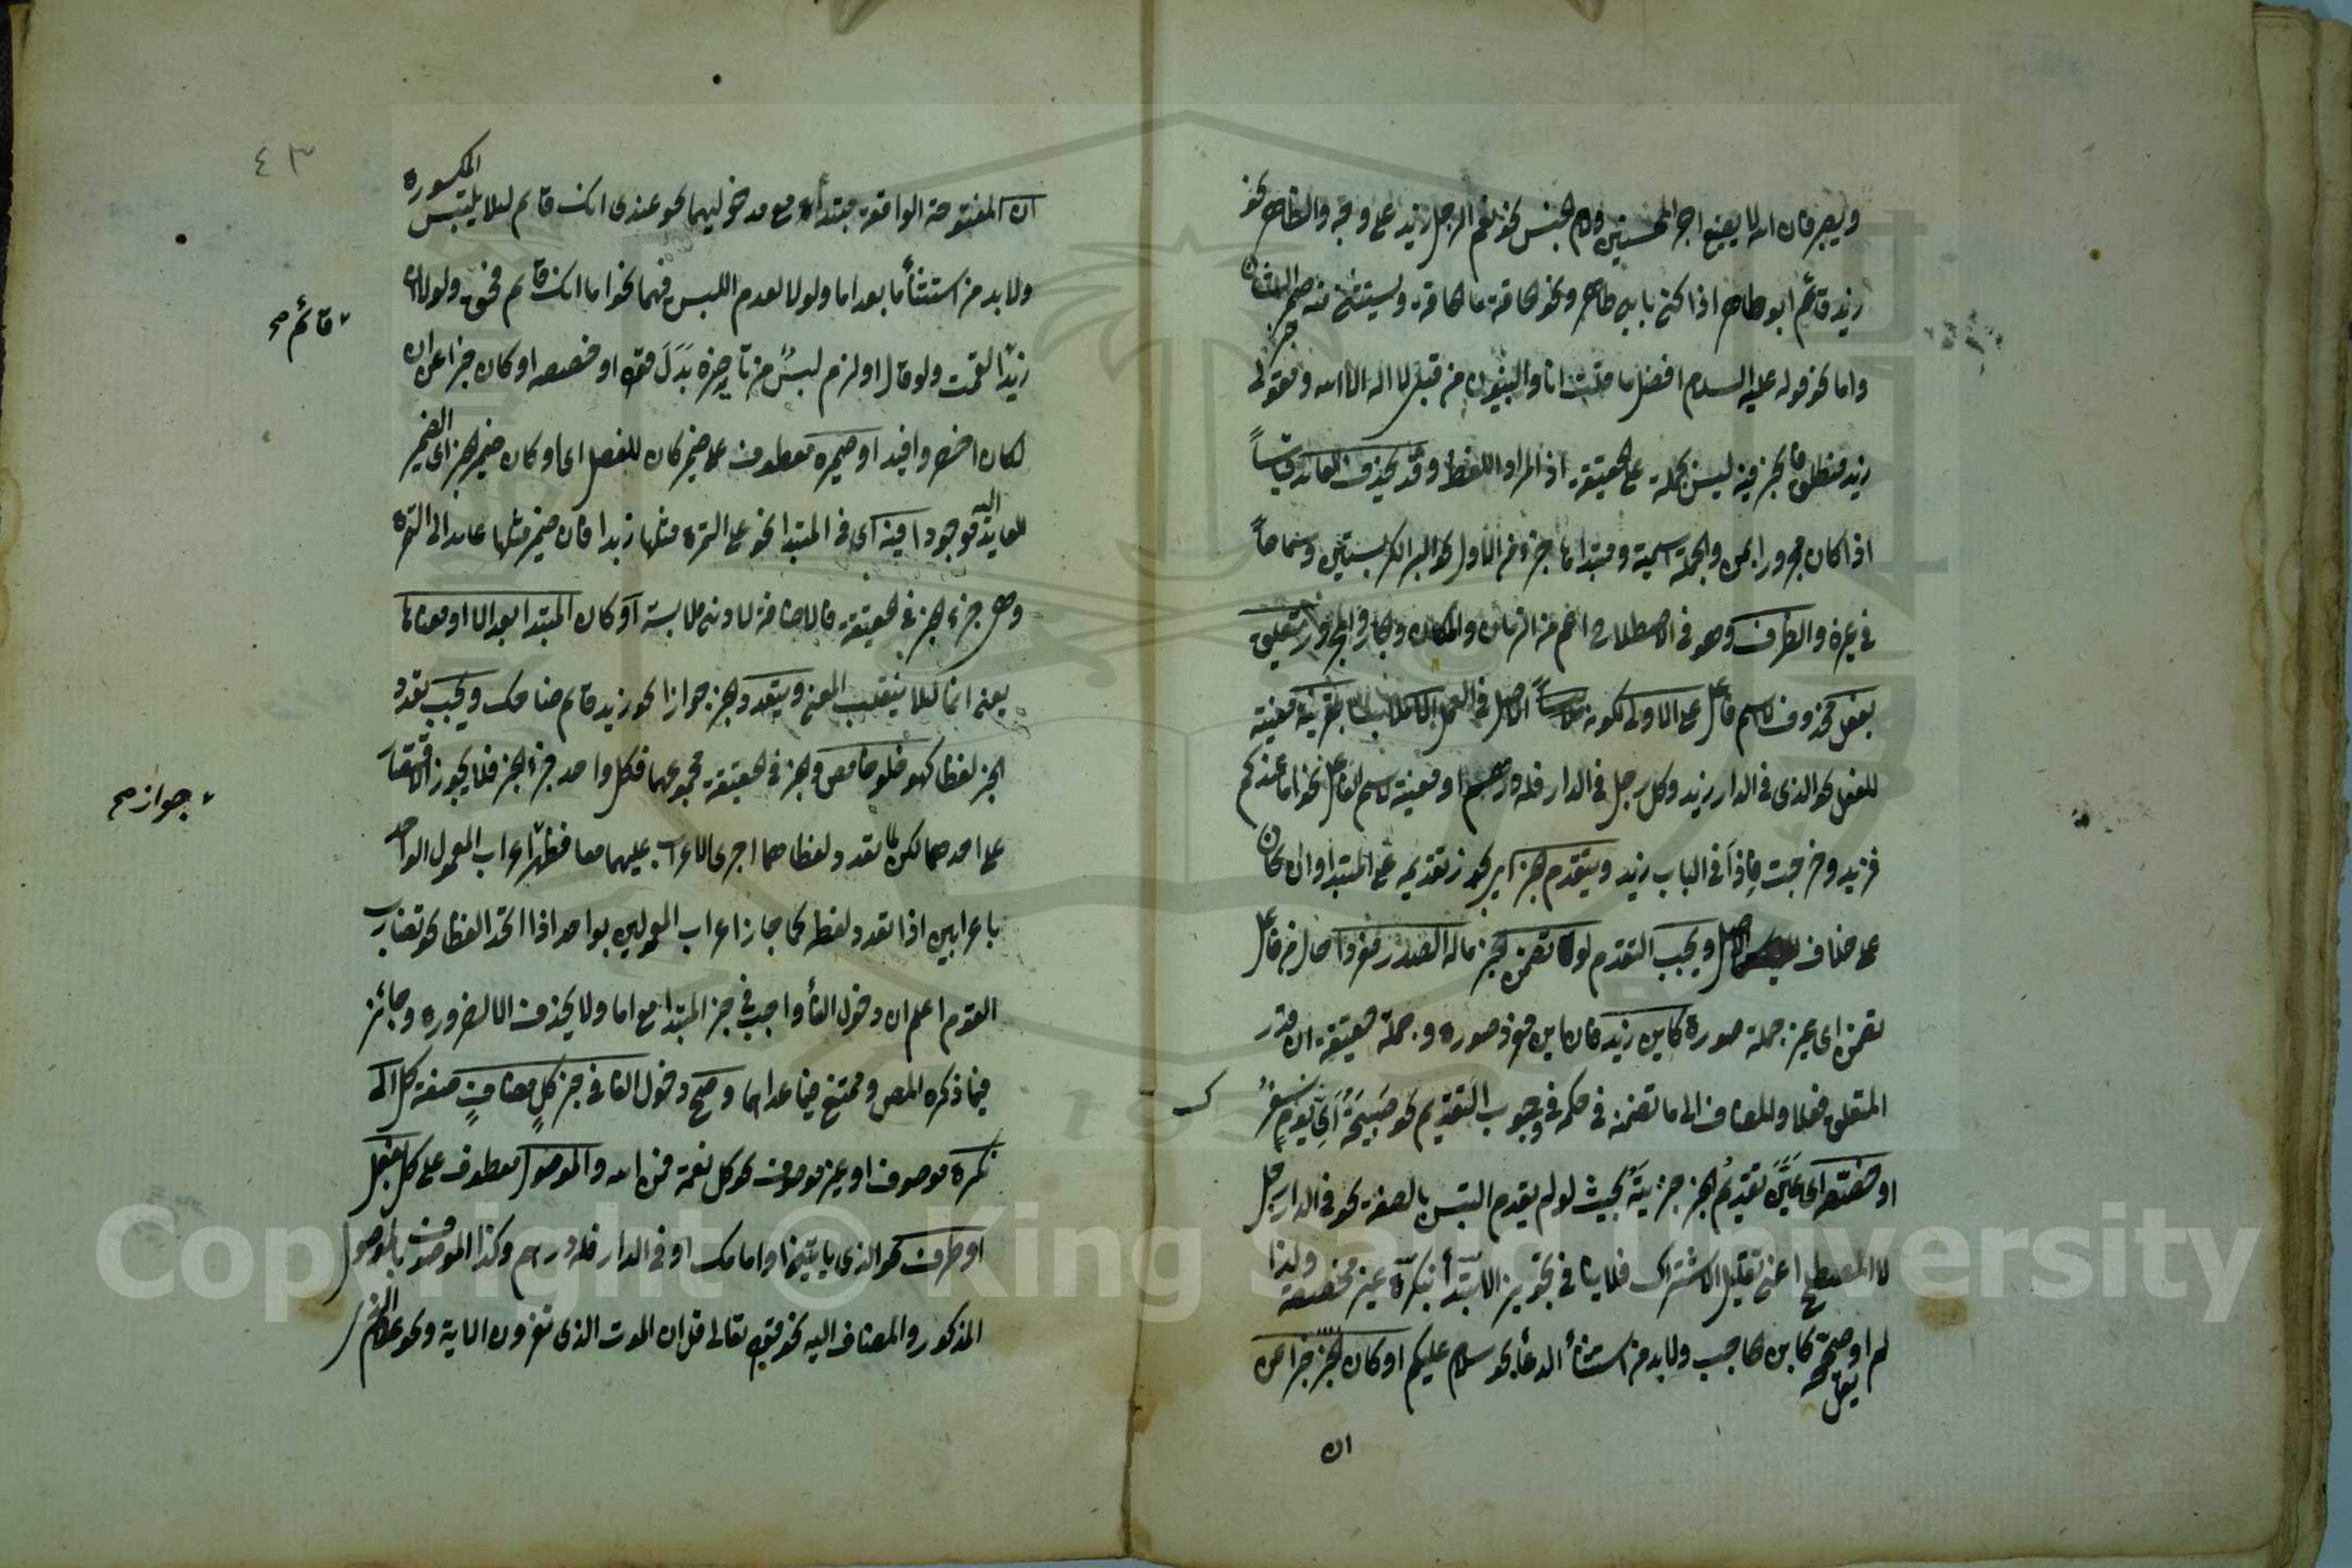 ويصبر فان الله لا يضيع اجر المحسنين ولام الجنس نحو نعم الرجل زيد على وجه والظاهر نحو
زيد قائم ابو طاهر اذا كنى بابي طاهر ونحو الحاقة ما الحاقة ويستثنى منه ضمير الشان
واما نحو قوله عليه السلام افضل ما قلت انا والنبيون من قبلي لا اله الا الله ومقولى
زيد منطلق فالخبر فيه ليس بجملة على الحقيقة اذ المراد اللفظ وقد يحذف العائد قياساً
اذا كان مجرورا بمن والجملة اسمية ومبتداها جزء من الاول نحو البر الكر بستين وسماعاً
في غيره والظرف وهو في الاصطلاح اعم من الزمان والمكان والجار والمجرور متعلق
بفعل محذوف لاسم فاعل على الاولى لكونه الاصل في العمل بقرينة معينة
للفعل نحو الذى في الدار زيد وكل رجل في الدار فله درهم او معينة لاسم الفاعل نحو اما عندكم
فزيد وخرجت فاذا في الباب زيد ويتقدم الخبر اى يجوز تقديمه على المبتدا وان كان
على خلاف الاصل ويجب التقدم لو تضمن الخبر ماله الصدر مفردا حال من فاعل
تضمن اى غير جملة صورة كاين زيد فان اين مفرد صورة وجملة حقيقة ان قدر
المتعلق فعلا وللمضاف الى ما تضمنه في حكمه في وجوب التقديم نحو صبيحة اى يوم سفر
او خصّصه اى عيّن تقديم الخبر خبريته بحيث لو لم يقدم التبس بالصفة نحو في الدار رجل
لا المصطلح اعنى تقليل الاشتراك فلا ينافى تجويز الابتدأ بنكرة غير مخصصة ولهذا
لم يقل او صححه كابن الحاجب ولا بد من استثنأ الدعأ نحو سلام عليكم او كان الخبر خبرا عن
ان
٤٣
ان المفتوحة الواقعة مبتدأ مع مدخوليهما نحو عندى انك قائم لئلا يلتبس المكسورة
ولا بد من استثنأ ما بعد اما ولولا لعدم اللبس فيهما نحو اما انك قائم فحق ولولا ان
قائم صح
زيدًا لقمت ولو قال او لزم لبسٌ من تأخيره بدل قوله او خصصه او كان خبرا عن ان
لكان اخصر وافيد او ضميره معطوف على خبر كان للفصل اى او كان ضمير الخبر اى الضمير
العايد اليه موجودا فيه اى في المبتدا نحو على التمرة مثلها زبدا فان ضمير مثلها عائد الى التمرة
وهى جزء الخبر في الحقيقة فالاضافة لادنى ملابسة او كان المبتدا بعد الا او معناها
يعنى انما لئلا ينقلب المعنى ويتعدد الخبر جوازا نحو زيد قائم ضاحك ويجب تعدد
الخبر لفظا كهو حلو حامض والخبر في الحقيقة مجموعهما فكل واحد جزء الخبر فلا يجوز الاقتصار
جواز صح
على احدهما لكن لما تعدد لفظاهما اجرى الاعراب عليهما معا فظهر اعراب المعمول الواحد
باعرابين اذا تعدد لفظه كما جاز اعراب المعمولين بواحد اذا اتحد لفظا نحو تضارب
القوم اعلم ان دخول الفأ واجب في خبر المبتدا مع اما ولا يحذف الا لضرورة وجائز
فيما ذكره المص وممتنع فيما عداهما وصح دخول الفا في خبر كلٍ مضافٍ صفة كل الى
نكرة موصوف او غير موصوف نحو كل نعمة فمن الله والموصول معطوف على كل بفعل
او ظرف نحو الذى ياتينى او امامك او في الدار فله درهم وكذا الموصوف بالموصول
المذكور والمضاف اليه نحو قوله تعالى قل ان الموت الذى تفرون الاية ونحو غلام الذى